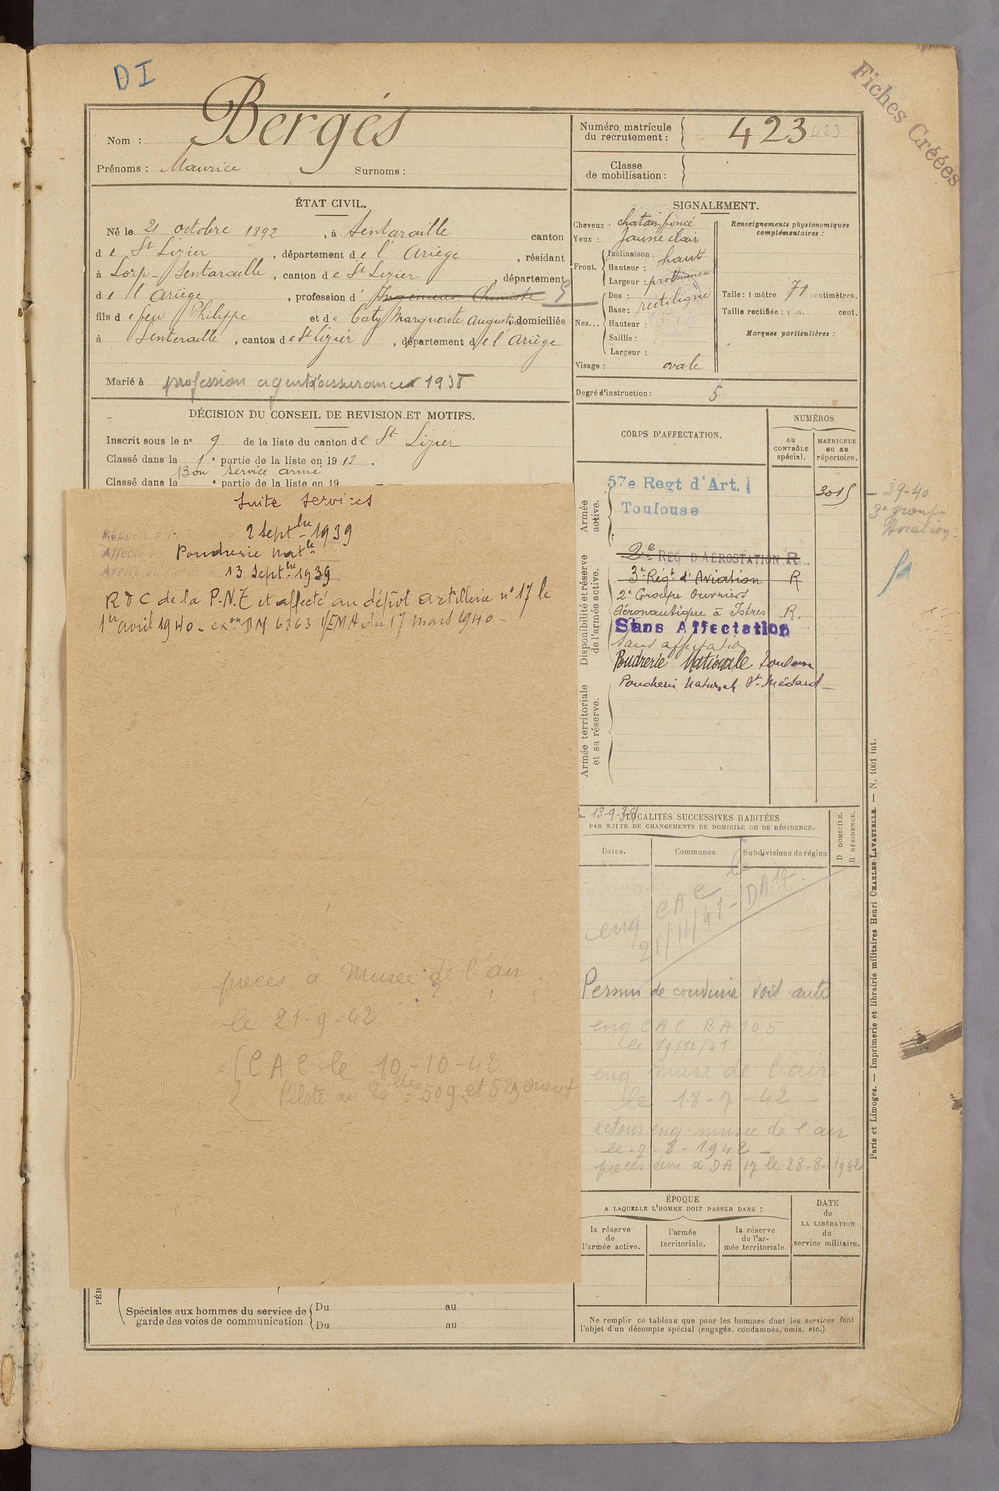 DI
Fiches Créées
Nom : Bergés
Prénoms : Maurice Surnoms :
Numéro matricule du recrutement : 423
Classe de mobilisation :
ÉTAT CIVIL.
Né le 21 octobre 1892, à Sentaraille canton
de St Lizier, département de l'Ariège, résidant
à Lorp-Sentaraille, canton de St Lizier département
de l'Ariège, profession d'Ingénieur Chimiste
fils de feu Philippe et de Caty Marguerite Augustine domiciliés
à Senteraille, canton de St Lizier, département de l'Ariège
Marié à profession agent d'assurances 1938
SIGNALEMENT.
Cheveux : chatain foncé
Yeux : Jaune clair
Front. Inclinaison :
Hauteur : haut
Largeur : proéminent
Nez... Dos :
Base : rectiligne
Hauteur :
Saillie :
Largeur :
Visage : ovale
Renseignements physionomiques complémentaires :
Taille : 1 mètre 71 centimètres.
Taille rectifiée : 1 m. cent.
Marques particulières :
Degré d'instruction : 5
DÉCISION DU CONSEIL DE REVISION ET MOTIFS.
Inscrit sous le no 9 de la liste du canton de St Lizier
Classé dans la 1e partie de la liste en 1912.
Bon service armé
Classé dans la e partie de la liste en 19
Suite services
2 Septbre 1939
Poudrerie Natle
13 Septbre 1939
R D C de la P.N.T et affecté au dépôt artillerie no 17 le
1er avril 1940 - exon DM 6363 1/EMA du 17 mars 1940 -
pieces à Musée de l'air
le 21-9-42
CAC le 10-10-42
Pilote au
CORPS D'AFFECTATION.
NUMÉROS
AU CONTRÔLE spécial.
MATRICULE ou au répertoire.
Armée active.
57e Regt d'Art.
Toulouse
3015
39-40
3e groupe
Disponibilité et réserve de l'armée active.
2e REG D'AÉROSTATION R
3e Régt d'Aviation R
2e Groupe Ouvriers
Aéronautique à Istres R.
Sans Affectation
Sans affectation
Poudrerie Nationale Toulouse
Poudrerie Nationale St Médard
Armée territoriale et sa réserve.
13-9-39
LOCALITÉS SUCCESSIVES HABITÉES
PAR SUITE DE CHANGEMENTS DE DOMICILE OU DE RÉSIDENCE.
Dates. Communes Subdivisions de région
D DOMICILE.
R RÉSIDENCE.
enq CAC DA 17
21/11/41
Permis de conduire voit auto
enq CAC BA 105
le 19/12/41
enq musé de l'air
le 18-7-42
retour enq musée de l'air
le 7-8-1942
pieces dem à DA 17 le 28-8-1942
ÉPOQUE
A LAQUELLE L'HOMME DOIT PASSER DANS :
la réserve de l'armée active.
l'armée territoriale.
la réserve de l'armée territoriale
DATE de LA LIBÉRATION du service militaire.
Spéciales aux hommes du service de garde des voies de communication
Du au
Du au
Ne remplir ce tableau que pour les hommes dont les services font l'objet d'un décompte spécial (engagés, condamnés, omis, etc.).
Paris et Limoges. — Imprimerie et librairie militaires Henri CHARLES-LAVAUZELLE. — N. 1001 int.